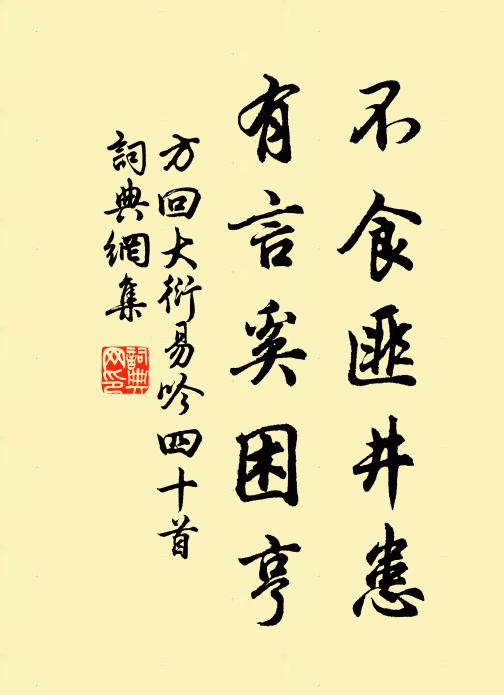 不食匪井患
有言奚困亨
方回大衍易吟四十首
詞典網集
詞典
网印